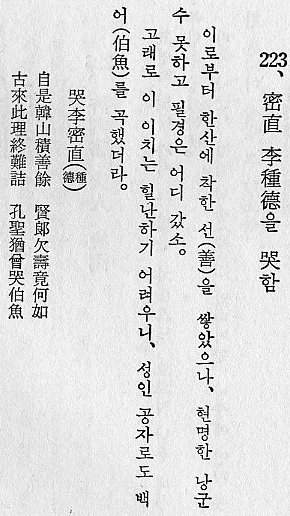 223、密直 李種德을 哭함
이로부터 한산에 착한 선(善)을 쌓았으나, 현명한 낭군
수 못하고 필경은 어디 갔소。
고래로 이 이치는 힐난하기 어려우니、성인 공자로도 백
어(伯魚)를 곡했더라。
哭李密直(種德)
自是韓山積善餘 賢郞欠壽竟何如
古來此理終難詰 孔聖猶曾哭伯魚